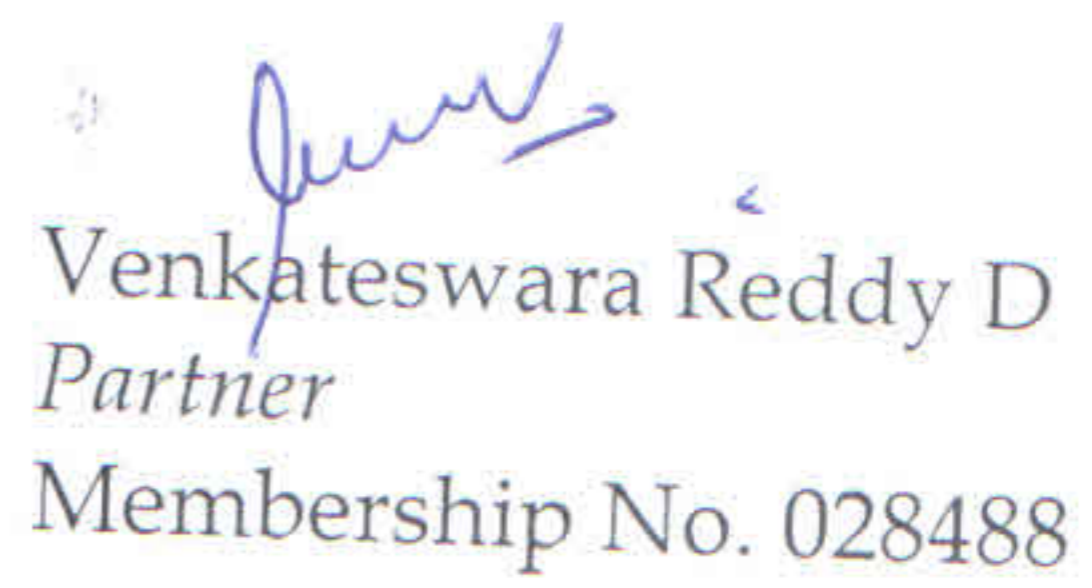 Venkateswara Reddy D
Partner
Membership No. 028488